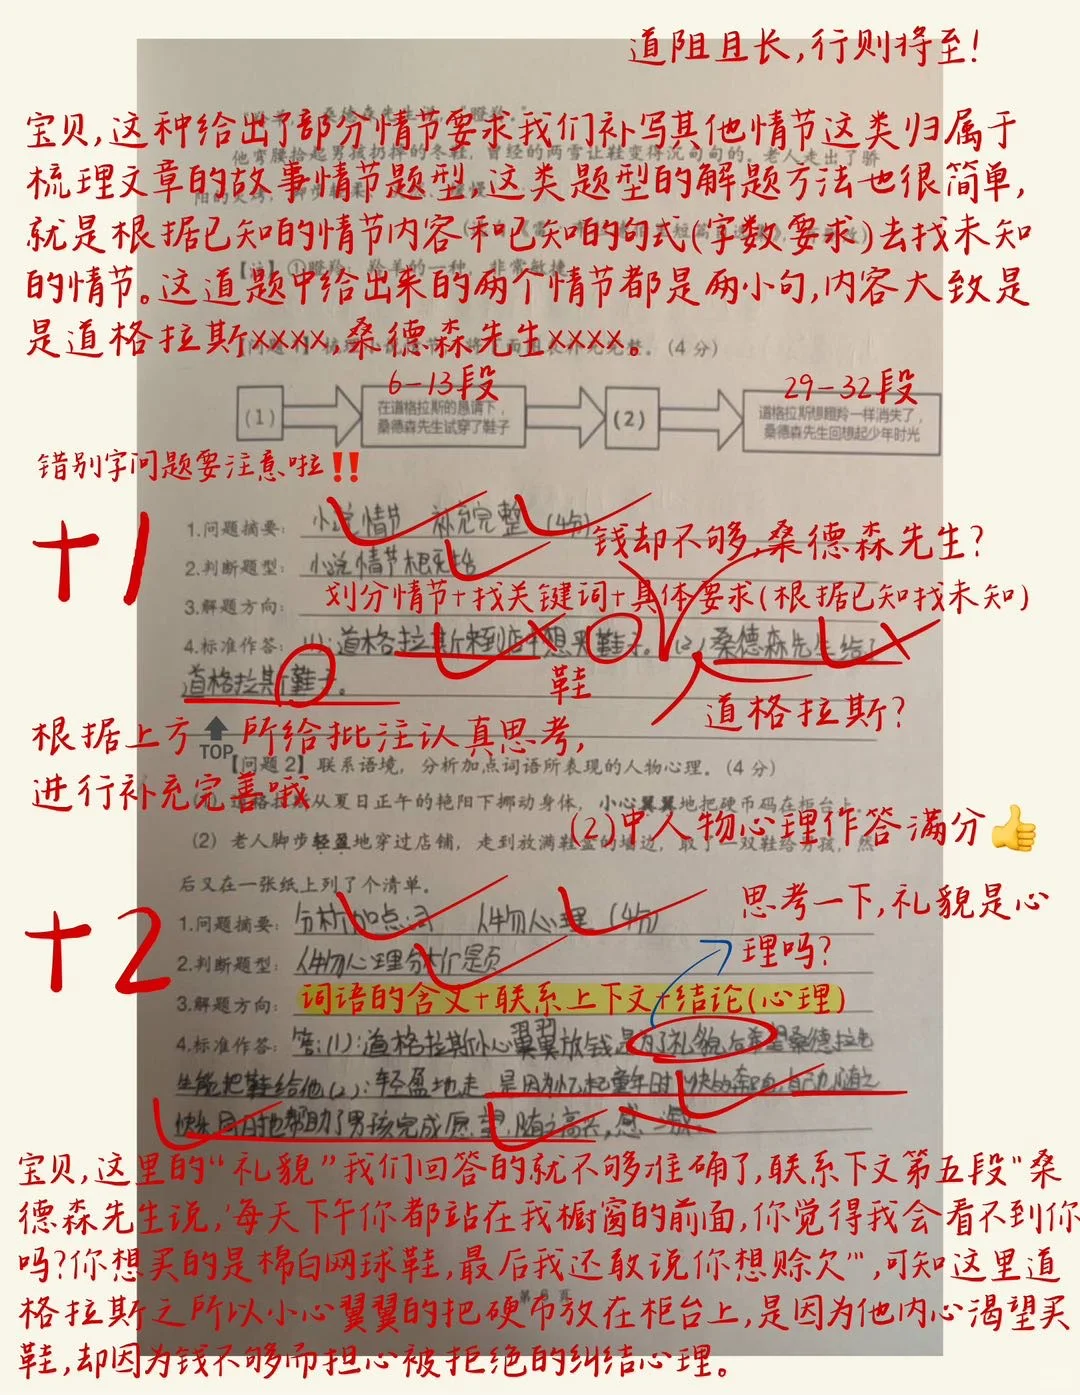 道阻且长,行则将至!
宝贝,这种给出了部分情节要求我们补写其他情节这类归属于
梳理文章的故事情节题型,这类题型的解题方法也很简单,
就是根据已知的情节内容和已知的句式(字数要求)去找未知
的情节。这道题中给出来的两个情节都是两小句,内容大致是
是道格拉斯xxxx,桑德森先生xxxx。
他弯腰拾起男孩扔掉的冬鞋,曾经的雨雪让鞋变得沉甸甸的。老人走出了骄
【注】①瞪羚:羚羊的一种,非常敏捷
(4 分)
6-13段
29-32段
(1)
在道格拉斯的恳请下,
桑德森先生试穿了鞋子
(2)
道格拉斯想瞪羚一样消失了,
桑德森先生回想起少年时光
错别字问题要注意啦!!
+1
1.问题摘要: 小说情节 补充完整 (4分)
钱却不够,桑德森先生?
2.判断题型: 小说情节梳理
划分情节+找关键词+具体要求(根据已知找未知)
3.解题方向:
4.标准作答: (1):道格拉斯来到店中想买鞋子。(2)桑德森先生给了
道格拉斯鞋子。
鞋
道格拉斯?
根据上方所给批注认真思考,
TOP
【问题 2】联系语境,分析加点词语所表现的人物心理。(4 分)
进行补充完善哦
从夏日正午的艳阳下挪动身体,小心翼翼地把硬币码在柜台上。
(2)中人物心理作答满分👍
(2) 老人脚步轻盈地穿过店铺,走到放满鞋盒的墙边,取了一双鞋给男孩,然
后又在一张纸上列了个清单。
思考一下,礼貌是心
理吗?
+2
1.问题摘要: 分析加点词 人物心理 (4分)
2.判断题型: 人物心理分析题
3.解题方向: 词语的含义+联系上下文+结论(心理)
4.标准作答: 答:(1):道格拉斯小心翼翼放钱是为了礼貌后希望桑德拉先
生能把鞋给他(2):轻盈地走,是因为忆起童年时
快乐,同时也帮助了男孩完成愿望,随之高兴,感
宝贝,这里的“礼貌”我们回答的就不够准确了,联系下文第五段“桑
德森先生说,‘每天下午你都站在我橱窗的前面,你觉得我会看不到你
吗?你想买的是棉白网球鞋,最后我还敢说你想赊欠’”,可知这里道
第 8 页
格拉斯之所以小心翼翼的把硬币放在柜台上,是因为他内心渴望买
鞋,却因为钱不够而担心被拒绝的纠结心理。